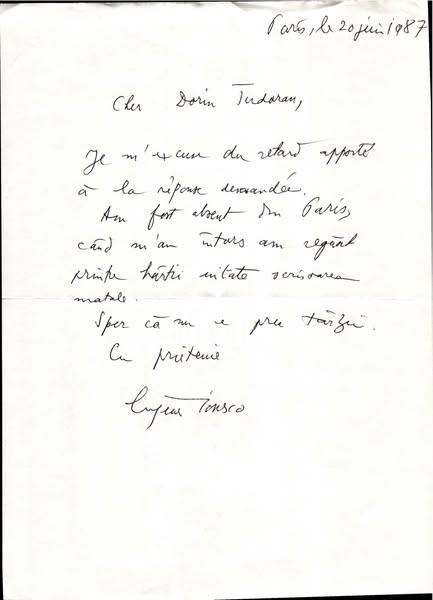 Paris, le 20 juin 1987
Cher Dorin Tudoran,
Je m'excuse du retard apporté
à la réponse demandée.
Am fost absent din Paris,
când m'am întors am regăsit
printre hârtii uitate scrisoarea
matale.
Sper că nu e prea târziu.
Cu prietenie
Eugène Ionesco